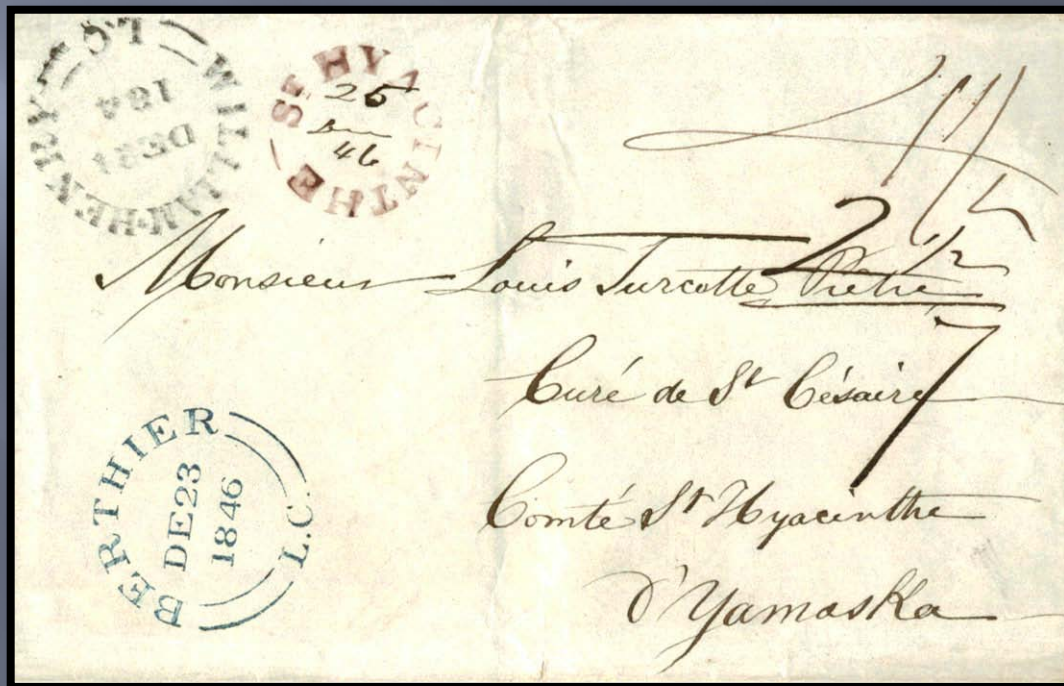 WILLIAM-HENRY L.C
DE24
184
ST HYACINTHE
25
46
2 1/2
Monsieur Louis Turcotte Prêtre
7
Curé de St Césaire
Comté St Hyacinthe
d'Yamaska
BERTHIER L.C.
DE23
1846